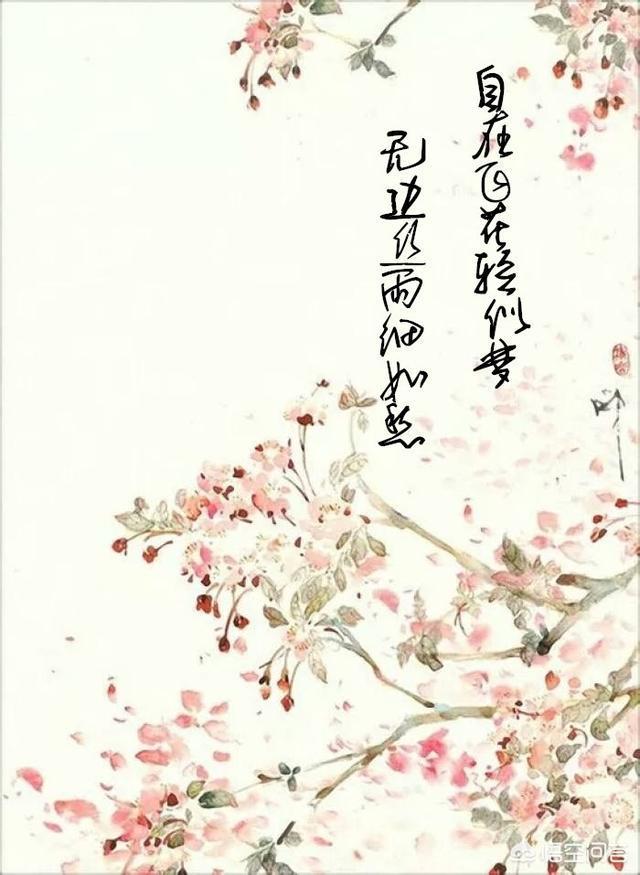 自在飞花轻似梦
无边丝雨细如愁
悟空问答